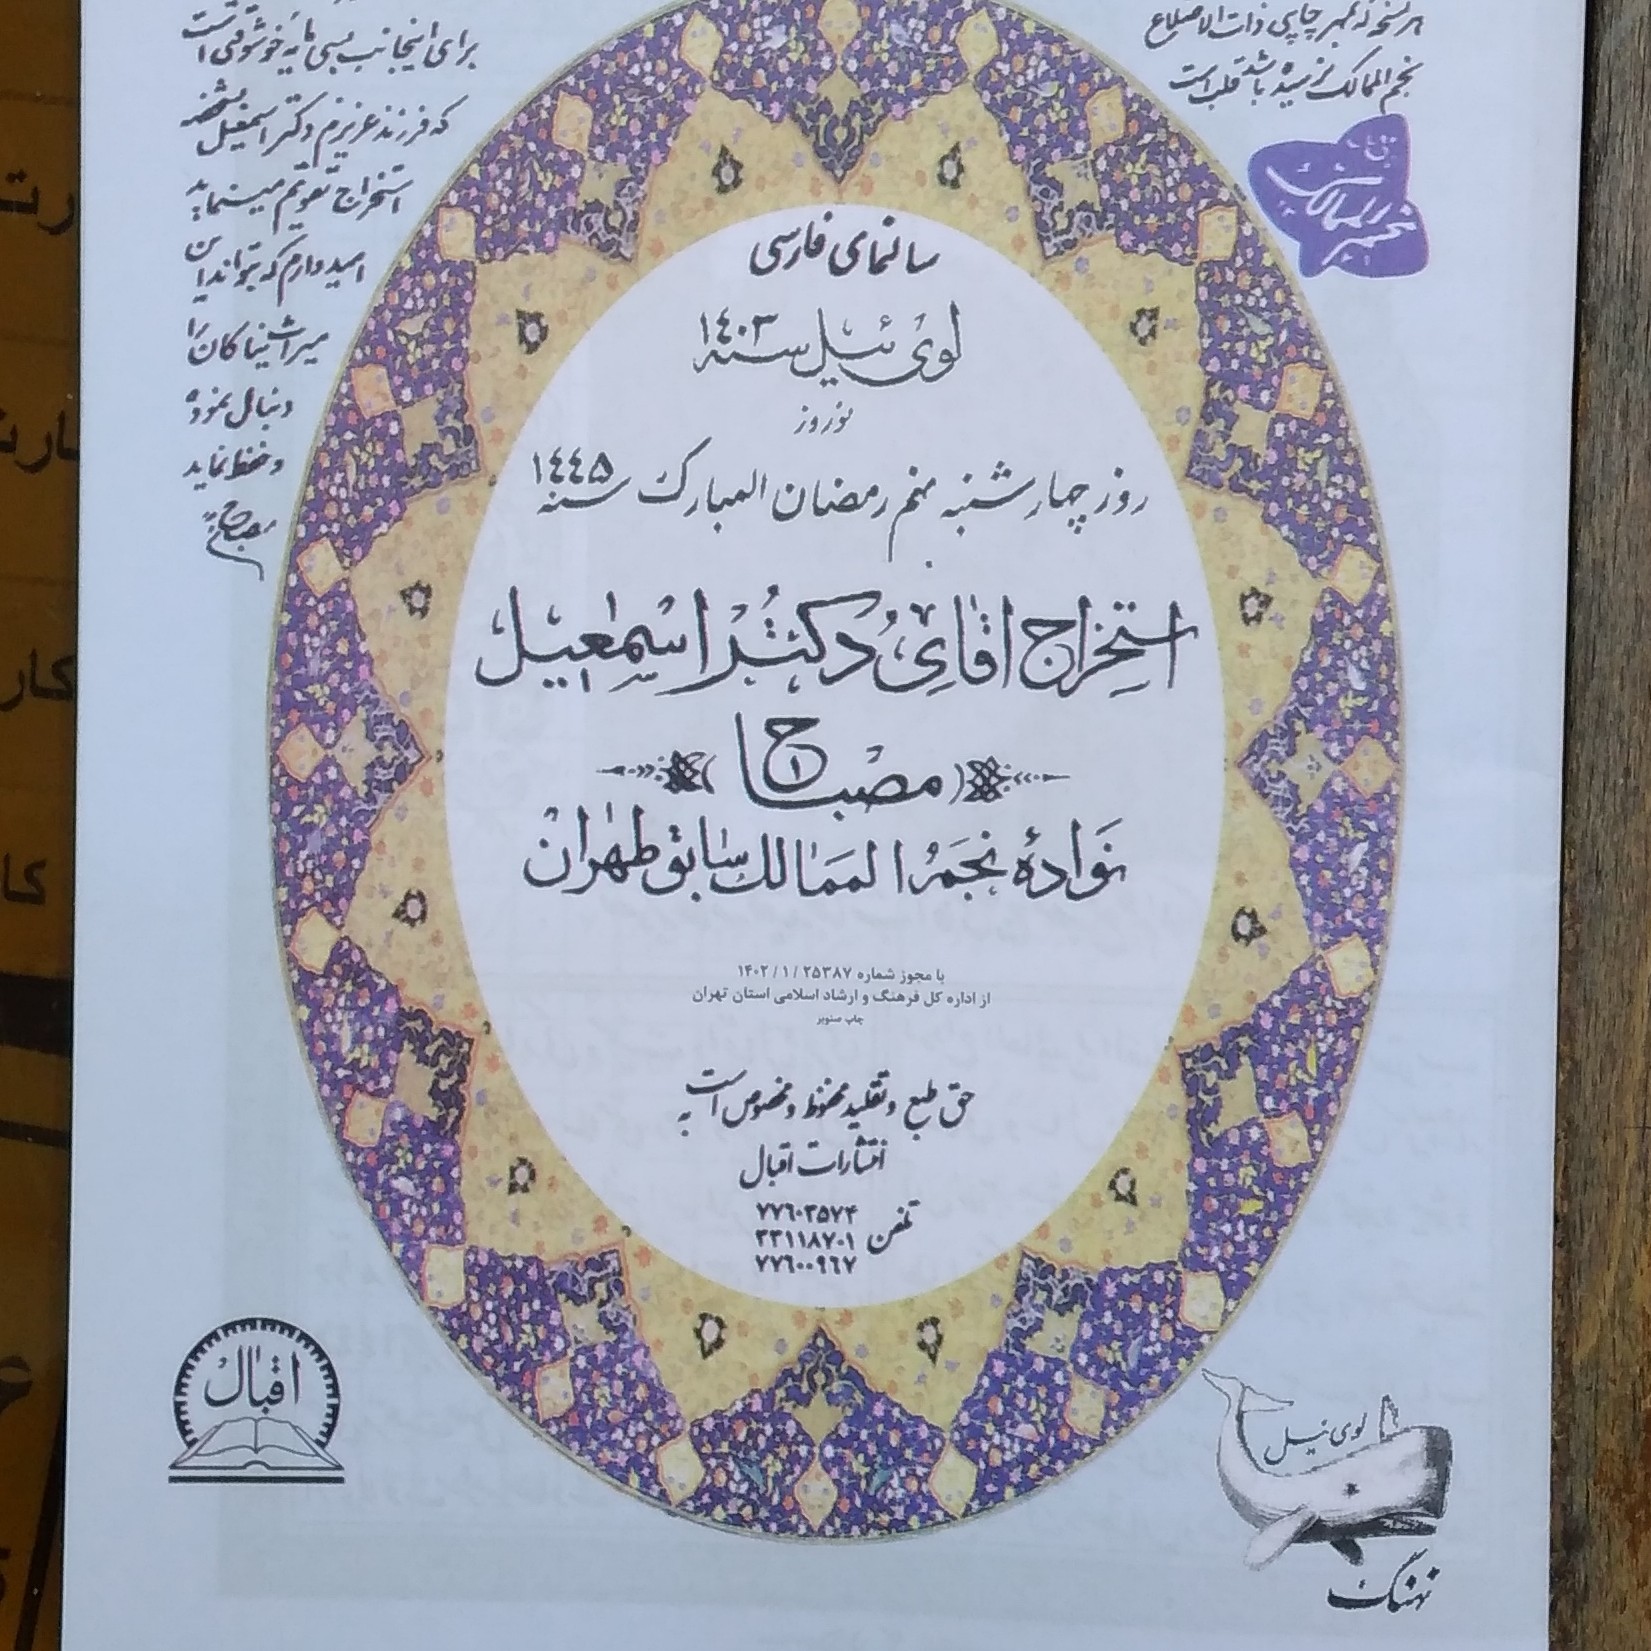 هر نسخه که بمهر چاپی ذات الاضلاع
نجم الممالک نرسیده باشد قلب است
نجم الممالک
برای اینجانب بسی مایه خوشوقتی است
که فرزند عزیزم دکتر اسمعیل
استخراج تقویم مینماید
امیدوارم که بتواند این
میراث نیاکان را
دنبال نموده
و حفظ نماید
مصباح
سالنمای فارسی
لوی ئیل سنه ۱۴۰۳
نوروز
روز چهارشنبه نهم رمضان المبارک سنه ۱۴۴۵
استخراج اقای دکتر اسمعیل
مصباح
نوادهٔ نجم الممالک سابق طهران
با مجوز شماره ۲۵۳۸۷ / ۱ / ۱۴۰۲
از اداره کل فرهنگ و ارشاد اسلامی استان تهران
چاپ صنوبر
حق طبع و تقلید محفوظ و مخصوص است به
انتشارات اقبال
تلفن ۷۷۶۰۳۵۷۴
۳۳۱۱۸۷۰۱
۷۷۶۰۰۹۶۷
اقبال
لوی ئیل
نهنگ